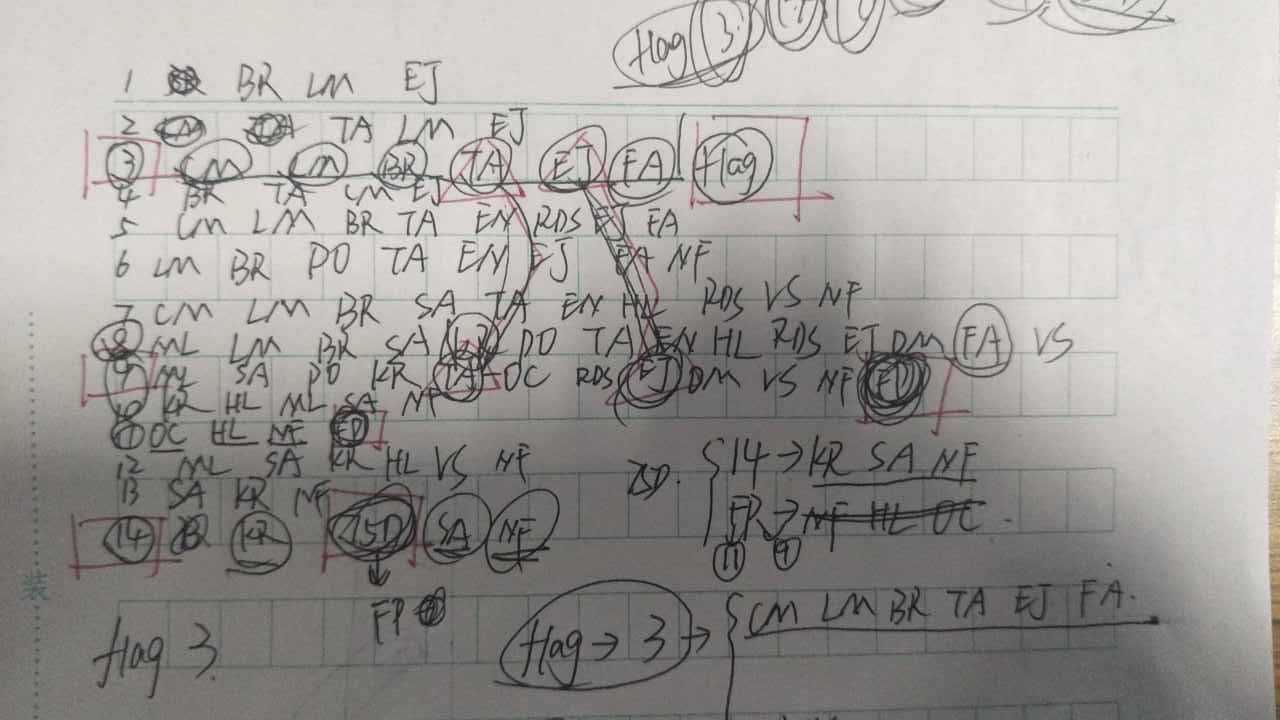 flag 3
1 BR LM EJ
2 CM TA LM EJ
3 CM LM BR TA EJ FA flag
4 BR TA CM EJ
5 CM LM BR TA EN RDS EJ FA
6 LM BR DO TA EN EJ FA NF
7 CM LM BR SA TA EN HL RDS VS NF
8 ML LM BR SA KR DO TA EN HL RDS EJ DM FA VS
9 ML SA DO KR TA OC RDS EJ DM VS NF EP
10 KR HL ML SA NF
11 OC HL NF EP
12 ML SA KR HL VS NF
13 SA KR NF
14 KR ZSD SA NF
ZSD. 14 → KR SA NF
→ NF HL OC
11 9
FP
flag 3
flag → 3 → CM LM BR TA EJ FA.
装